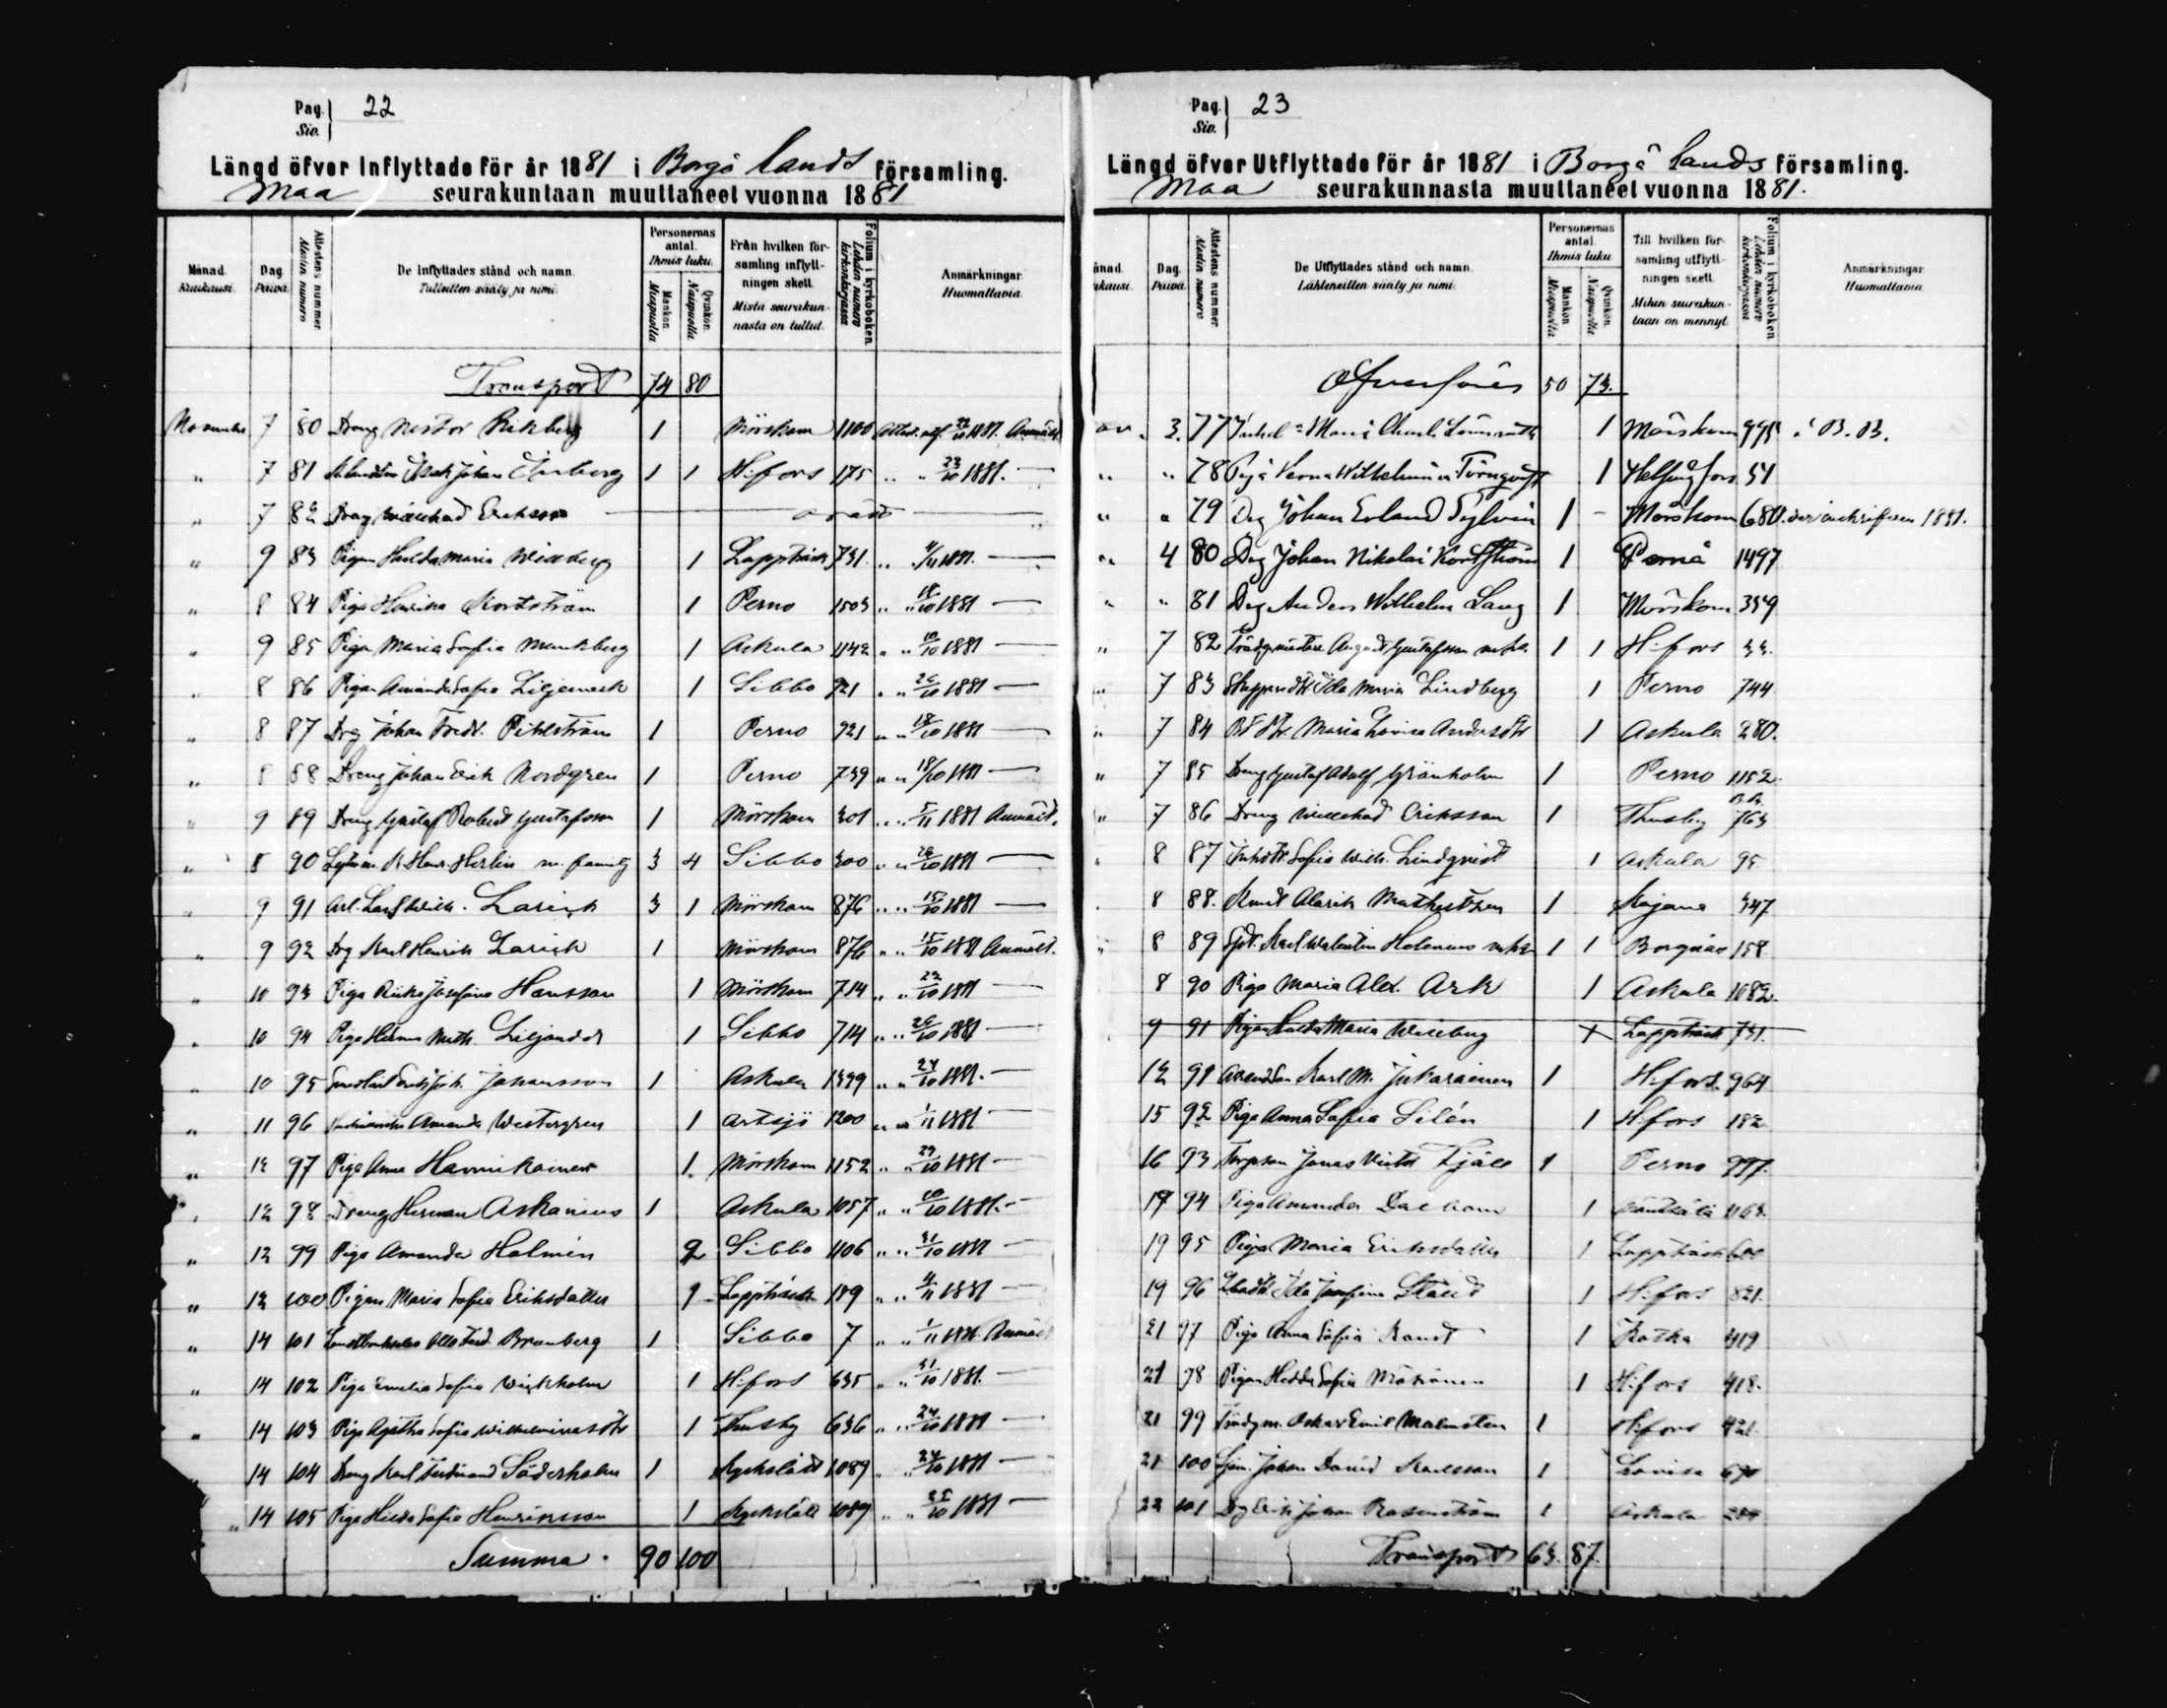 Pag. 22
Siv.
Längd öfver Inflyttade för år 1881 i Borgå lands församling.
Maa seurakuntaan muuttaneet vuonna 1881
Månad. Kuukausi.
Dag. Päivä.
Attestens nummer. Alestin numero
De Inflyttades stånd och namn. Tulleitten sääty ja nimi.
Personernas antal. Ihmis luku.
Mankön. Miespuolta
Qvinkön. Naispuolta
Från hvilken församling inflyttningen skett. Mistä seurakunnasta on tullut.
Folium i kyrkoboken. Lehden numero kirkonkirjassa
Anmärkningar. Huomattavia.
Transport 74 80
November 7 80 Dreng Nestor Rikberg 1 Mörskom 1100 1881. Anmält
" 7 81 Johan 1 1 H:fors 175 " " 23/10 1881. —
" 7 82 Dreng Willehad Eriksson
" 9 83 Pigan Hulda Maria Wiseberg 1 Lappträsk 731. " 1881. —
" 8 84 Piga Henrika Kortström 1 Perno 1503 " " 18/10 1881 —
" 9 85 Piga Maria Sofia Munkberg 1 Askula 1142 " " 10/10 1881 —
" 8 86 Pigan Amanda Sofia Liljemark 1 Sibbo 921 " " 26/10 1881 —
" 8 87 Drg Johan Fredr. Pihlström 1 Perno 721 " " 18/10 1881 —
" 8 88 Dreng Johan Erik Nordgren 1 Perno 739 " " 18/10 1881 —
" 9 89 Dreng Gustaf Robert Gustafsson 1 Mörskom 301 " " 5/11 1881 Anmält.
" 8 90 Henr. Herlin m. familj 3 4 Sibbo 300 " " 28/10 1881 —
" 9 91 Larick 3 1 Mörskom 876 " " 15/10 1881 —
" 9 92 Drg Karl Henrik Larick 1 Mörskom 876 " " 15/10 1881 Anmält.
" 10 93 Piga Josefina Hansson 1 Mörskom 714 " " 29/10 1881 —
" 10 94 Piga 1 Sibbo 714 " " 26/10 1881 —
" 10 95 Johansson 1 Askula 1399 " " 24/10 1881. —
" 11 96 Amanda Westergren 1 Artsjö 1200 " " 1/11 1881 —
" 12 97 Piga Anna Hannikainen 1. Mörskom 1152 " " 29/10 1881 —
" 12 98 Dreng Herman Askanius 1 Askula 1057 " " 10/10 1881. —
" 12 99 Piga Amanda Holmén 2 Sibbo 1106 " " 31/10 1881 —
" 12 100 Pigan Maria Sofia Eriksdotter 1 Lappträsk 189 " " 4/11 1881 —
" 14 101 Otto Ferd. Bromberg 1 Sibbo 7 " " 1/11 1881. Anmält
" 14 102 Piga Emelia Sofia Wickholm 1 H:fors 635 " " 31/10 1881. —
" 14 103 Piga Agatha Sofia 1 Thusby 636 " " 24/10 1881 —
" 14 104 Dreng Karl Ferdinand Söderholm 1 Kyrkslätt 1089 " " 24/10 1881 —
" 14 105 Piga Hilda Sofia Henriksson 1 Kyrkslätt 1089 " " 25/10 1881 —
Summa. 90 100
Pag. 23
Siv.
Längd öfver Utflyttade för år 1881 i Borgå lands församling.
Maa seurakunnasta muuttaneet vuonna 1881.
ånad. ukausi.
Dag. Päivä.
Attestens nummer. Alestin numero
De Utflyttades stånd och namn. Lähteneitten sääty ja nimi.
Personernas antal. Ihmis luku.
Mankön. Miespuolta
Qvinkön. Naispuolta
Till hvilken församling utflyttningen skett. Mihin seurakuntaan on mennyt.
Folium i kyrkoboken. Lehden numero kirkonkirjassa
Anmärkningar. Huomattavia.
Öfverföres 50 73.
3. 77 Maria 1 Mörskom 995 B.B.
" " 78 Piga Wilhelmina Törnqvist 1 Helsingfors 51
" " 79 Drg Johan Erland Sylvin 1 - Mörskom 680. 1881.
" 4 80 Drg Johan Nikolai Kortström 1 Pernå 1497
" " 81 Drg Anders Wilhelm Lang 1 Mörskom 359
" 7 82 August Gustafsson 1 1 H:fors 33.
" 7 83 Ida Maria Lindberg 1 Perno 744
" 7 84 Maria Lovisa Andersdtr 1 Askula 280.
" 7 85 Dreng Gustaf Adolf Grönholm 1 Perno 1152.
" 7 86 Dreng Willehad Eriksson 1 Thusby 763
8 87 Sofia Wilh. Lindqvist 1 Askula 95
8 88. Knut Alarik 1 Kajana 347
" 8 89 Karl Walentin Helenius 1 1 Borgnäs 158.
8 90 Piga Maria Alex. Ark 1 Askula 1082.
9 91 Pigan Hulda Maria Wiseberg Lappträsk 731.
12 91 Karl M. Jukarainen 1 H:fors. 964
15 92 Piga Anna Sofia Silén 1 H:fors 182
16 93 Jonas Victor Fjäll 1 Perno 997.
17 94 Piga Amanda 1
19 95 Piga Maria Eriksdotter 1 Lappträsk
19 96 Ida Josefina 1 H:fors 821.
21 97 Piga Anna Sofia 1 Kotka 419
21 98 Pigan Hedda Sofia 1 H:fors 418.
21 99 Oskar Emil Malmsten 1 H:fors 421.
21 100 Johan David Karlsson 1 Lovisa 670
22 101 Drg Erik Johan Rosenström 1 Askula
Transport 63. 87.